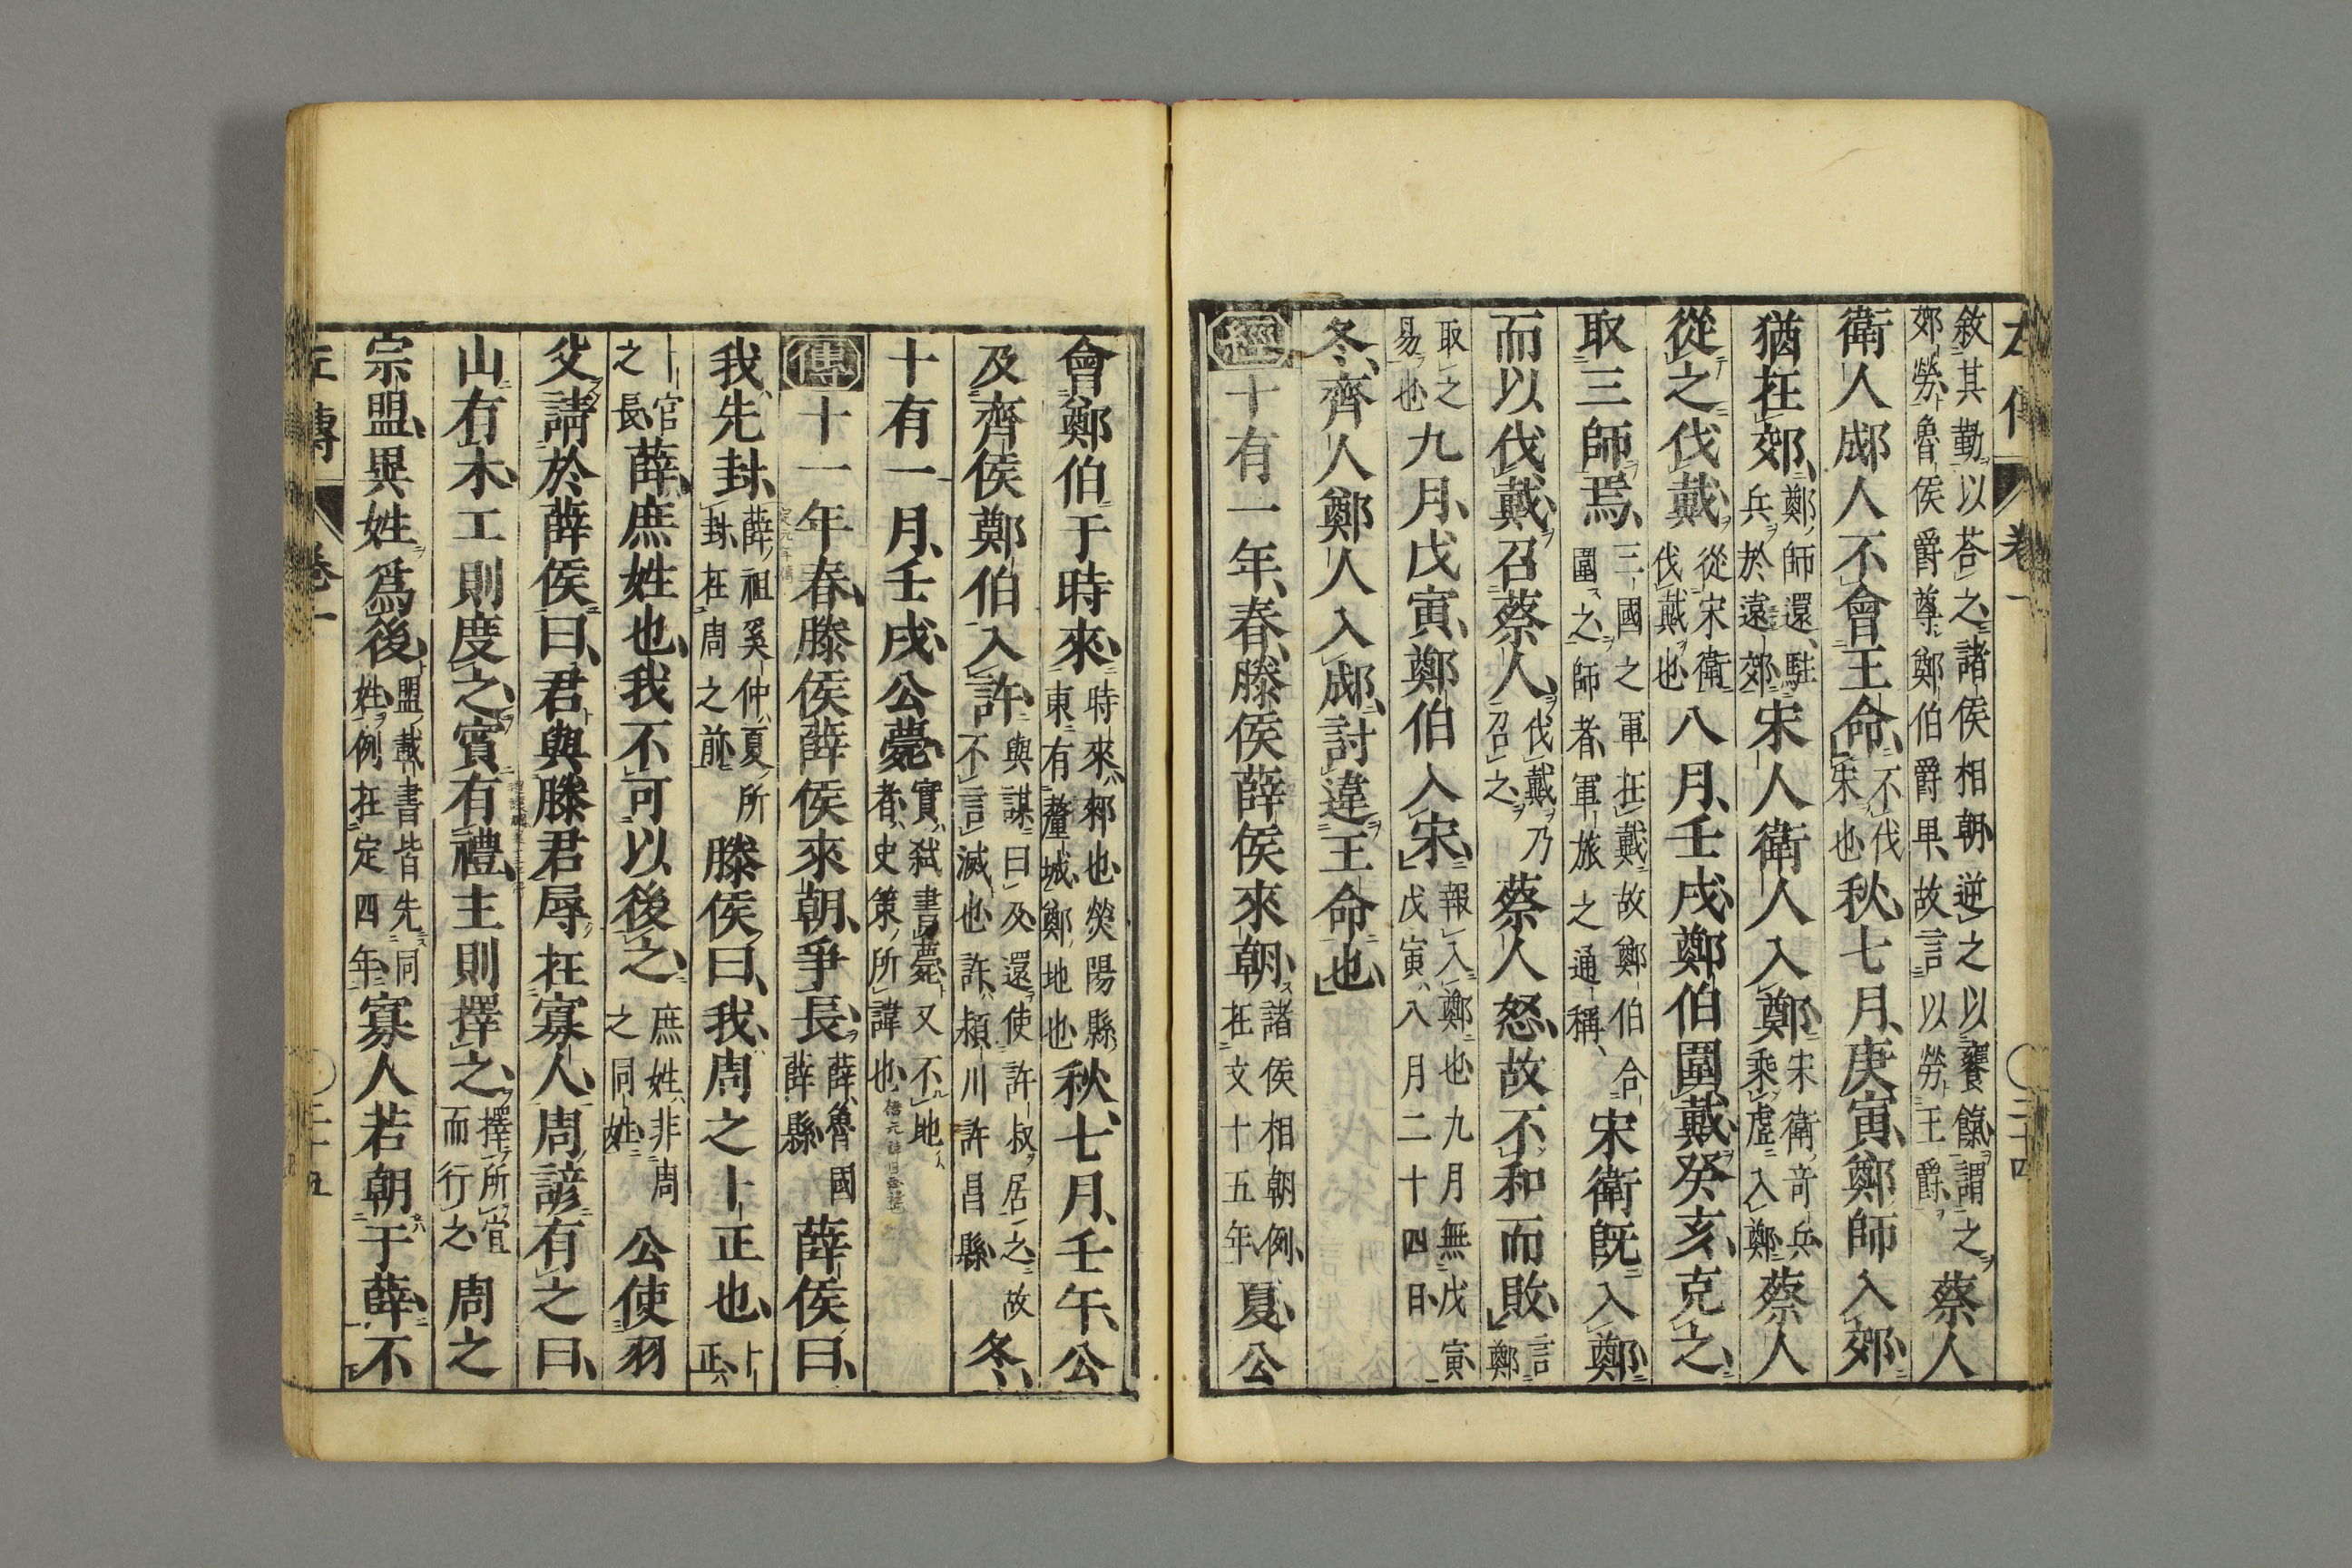 左傳 卷一 三十四
敘其勤以荅之諸侯相朝逆之以饔餼謂之
郊勞魯侯爵尊鄭伯爵卑故言以勞王爵
蔡人
衛人郕人不會王命
不伐
宋也
秋七月庚寅鄭師入郊
猶在郊
鄭師還駐
兵於遠郊
宋人衛人入鄭
宋衛奇兵
乘虛入鄭
蔡人
從之伐戴
從宋衛
伐戴也
八月壬戌鄭伯圍戴癸亥克之
取三師焉
三國之軍在戴故鄭伯合
圍之師者軍旅之通稱
宋衛既入鄭
而以伐戴召蔡人
伐戴乃
召之
蔡人怒故不和而敗
言
鄭
取之
易也
九月戊寅鄭伯入宋
報入鄭也九月無戊寅
戊寅八月二十四日
冬齊人鄭人入郕討違王命也
經十有一年春滕侯薛侯來朝
諸侯相朝例
在文十五年
夏公
會鄭伯于時來
時來郲也熒陽縣
東有釐城鄭地也
秋七月壬午公
及齊侯鄭伯入許
與謀曰及還使許叔居之故
不言滅也許潁川許昌縣
冬
十有一月壬戌公薨
實弒書薨又不地
者史策所諱也
傳十一年春滕侯薛侯來朝爭長
薛魯國
薛縣
薛侯曰
我先封
薛祖奚仲夏所
封在周之前
滕侯曰我周之卜正也
卜
正
官
之長
薛庶姓也我不可以後之
庶姓非周
之同姓
公使羽
父請於薛侯曰君與滕君辱在寡人周諺有之曰
山有木工則度之賓有禮主則擇之
擇所宜
而行之
周之
宗盟異姓爲後
盟載書皆先同
姓例在定四年
寡人若朝于薛不
左傳 卷一 三十五